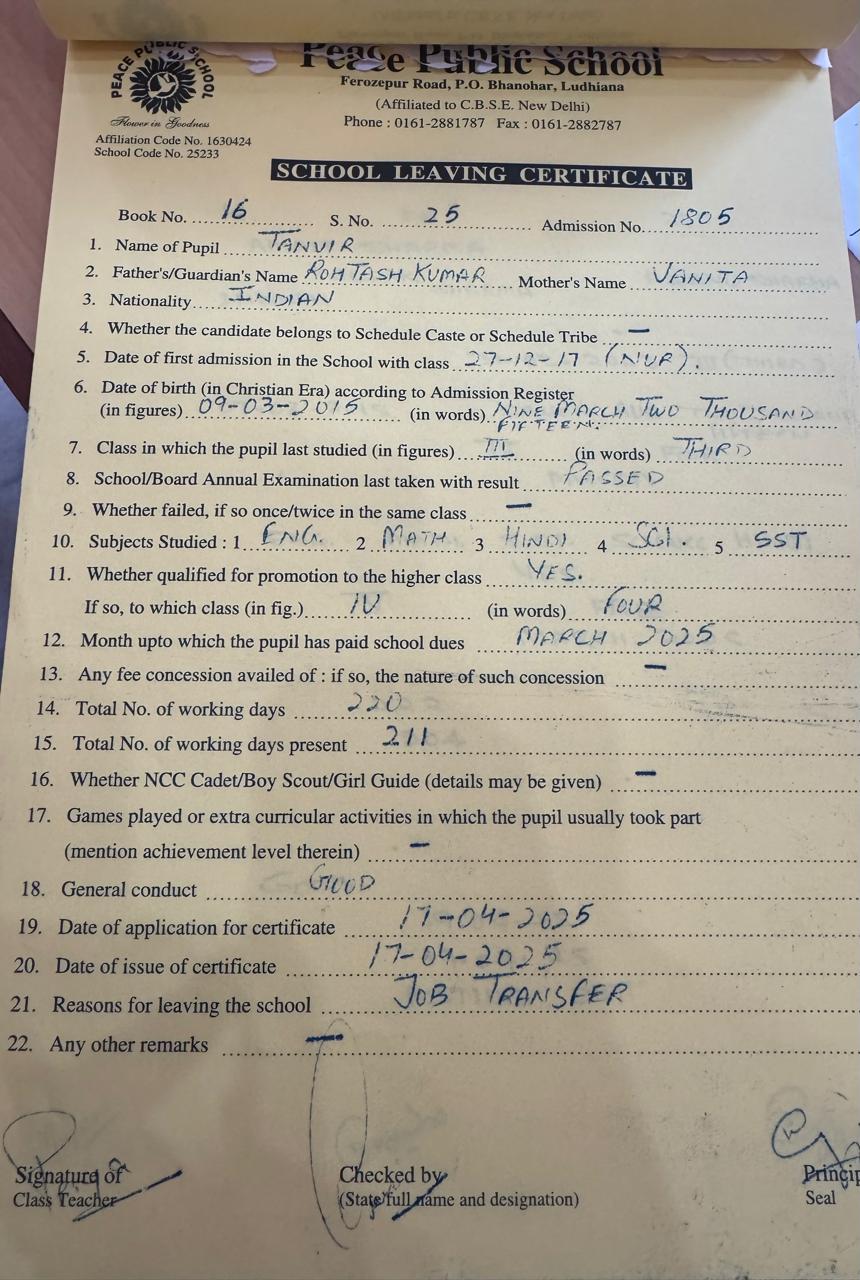 PEACE PUBLIC SCHOOL
Flower in Goodness
Peace Public School
Ferozepur Road, P.O. Bhanohar, Ludhiana
(Affiliated to C.B.S.E. New Delhi)
Phone : 0161-2881787 Fax : 0161-2882787
Affiliation Code No. 1630424
School Code No. 25233
SCHOOL LEAVING CERTIFICATE
Book No. 16 S. No. 25 Admission No. 1805
1. Name of Pupil TANVIR
2. Father's/Guardian's Name ROHTASH KUMAR Mother's Name VANITA
3. Nationality INDIAN
4. Whether the candidate belongs to Schedule Caste or Schedule Tribe —
5. Date of first admission in the School with class 27-12-17 (NUR).
6. Date of birth (in Christian Era) according to Admission Register
(in figures) 09-03-2015 (in words) NINE MARCH TWO THOUSAND
FIFTEEN.
7. Class in which the pupil last studied (in figures) III (in words) THIRD
8. School/Board Annual Examination last taken with result PASSED
9. Whether failed, if so once/twice in the same class —
10. Subjects Studied : 1 ENG. 2 MATH 3 HINDI 4 SCI. 5 SST
11. Whether qualified for promotion to the higher class YES.
If so, to which class (in fig.) IV (in words) FOUR
12. Month upto which the pupil has paid school dues MARCH 2025
13. Any fee concession availed of : if so, the nature of such concession —
14. Total No. of working days 220
15. Total No. of working days present 211
16. Whether NCC Cadet/Boy Scout/Girl Guide (details may be given) —
17. Games played or extra curricular activities in which the pupil usually took part
(mention achievement level therein) —
18. General conduct GOOD
19. Date of application for certificate 17-04-2025
20. Date of issue of certificate 17-04-2025
21. Reasons for leaving the school JOB TRANSFER
22. Any other remarks —
Signature of Checked by Princip
Class Teacher (State full name and designation) Seal